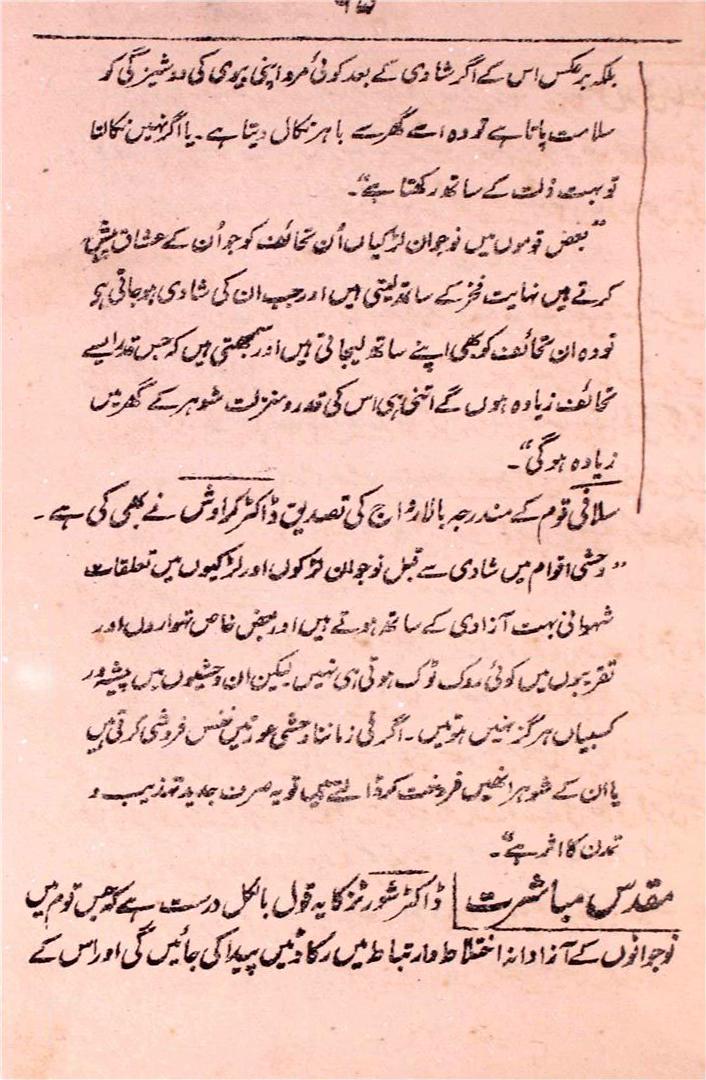 بلکہ برعکس اس کے اگر شادی کے بعد کوئی مرد اپنی بیوی کی دوشیزگی کو
سلامت پاتا ہے تو وہ اسے گھر سے باہر نکال دیتا ہے۔ یا اگر نہیں نکالتا
تو بہت ذلت کے ساتھ رکھتا ہے"۔
"بعض قوموں میں نوجوان لڑکیاں اُن تحائف کو جو اُن کے عشاق پیش
کرتے ہیں نہایت فخر کے ساتھ لیتی ہیں اور جب ان کی شادی ہو جاتی ہی
تو وہ ان تحائف کو بھی اپنے ساتھ لیجاتی ہیں اور سمجھتی ہیں کہ جس قدر ایسے
تحائف زیادہ ہوں گے اتنی ہی اس کی قدر و منزلت شوہر کے گھر میں
زیادہ ہوگی"۔
سلافی قوم کے مندرجہ بالا رواج کی تصدیق ڈاکٹر کراوش نے بھی کی ہے۔
"وحشی اقوام میں شادی سے قبل نوجوان لڑکوں اور لڑکیوں میں تعلقات
شہوانی بہت آزادی کے ساتھ ہوتے ہیں اور بعض خاص تہواروں اور
تقریبوں میں کوئی روک ٹوک ہوتی ہی نہیں لیکن ان وحشیوں میں پیشہ ور
کسبیاں ہرگز نہیں ہوتیں۔ اگر فی زماننا وحشی عورتیں نفس فروشی کرتی ہیں
یا ان کے شوہر انھیں فروخت کر ڈالتے ہیں تو یہ صرف جدید تہذیب و
تمدن کا اثر ہے"۔
مقدس مباشرت ڈاکٹر شورٹز کا یہ قول بالکل درست ہے کہ جس قوم میں
نوجوانوں کے آزادانہ اختلاط و ارتباط میں رکاوٹیں پیدا کی جائیں گی اور اس کے